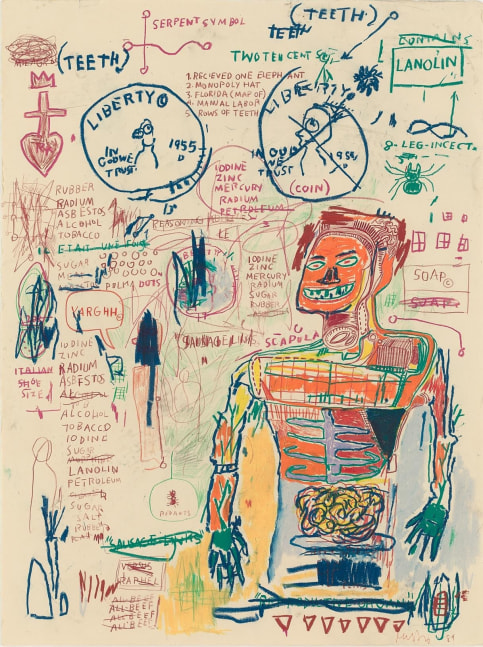 SERPENT SYMBOL
(TEETH)
TEETH
(TEETH)
TWO TEN CENTS
CONTAINS
LANOLIN
1. RECIEVED ONE ELEPHANT
2. MONOPOLY HAT
3. FLORIDA (MAP OF)
4. MANUAL LABOR
5. ROWS OF TEETH
LIBERTY©
IN
GOD WE
TRUST.
1955
D
LIBERTY©
WE
TRUST
195
D
(COIN)
8-LEG-INCECT.
IODINE
ZINC
MERCURY
RADIUM
PETROLEUM
RUBBER
RADIUM
ASBESTOS
ALCOHOL
TOBACCO
ETAIT UNE FOIS
SUGAR
POLMA DOTS
VARGHH©
IODINE
ZINC
MERCURY
RADIUM
SUGAR
RUBBER
SOAP©
SOAP
SAUSAGE LINKS
SCAPULA
IODINE
ZINC
RADIUM
ASBESTOS
ITALIAN
SHOE
SIZE
ALCOHOL
TOBACCO
IODINE
SUGAR
LANOLIN
PETROLEUM
SUGAR
SALT
RUBBER
VERSUS
RAPHEL
ALL BEEF
ALL-BEEF
ALL BEEF
ALL BEEF